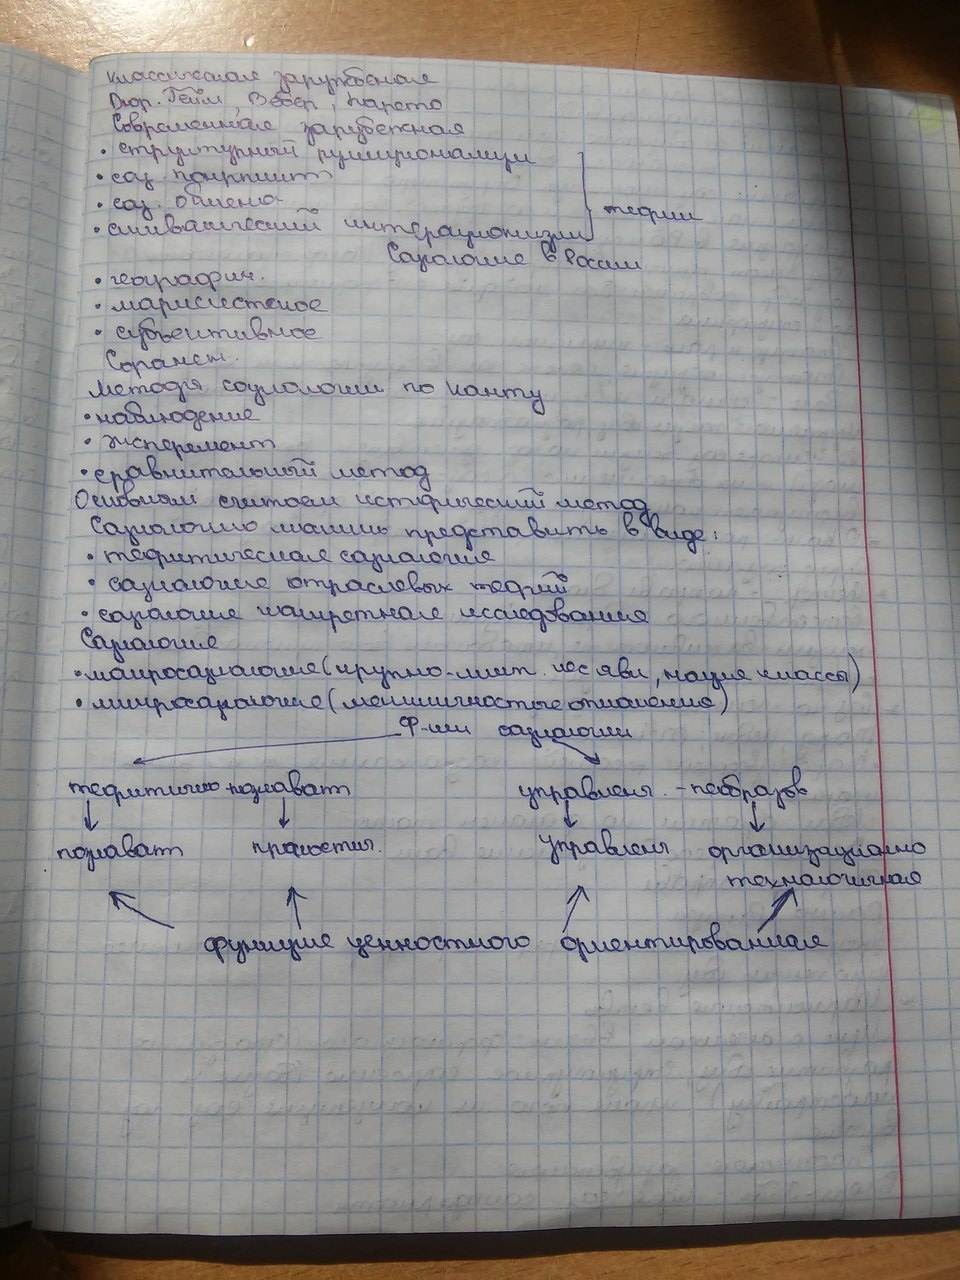 классическая зарубежная
Дюр.Гейм, Вебер, Парето
Современная зарубежная
• структурный функционализм
• соц. конфликт
• соц. обмена
теории
• символический интеракционизм
Социология в России
• географич.
• марксистское
• субъективное
Методы социологии по Конту
• наблюдение
• эксперемент
• сравнительный метод
Основным считаем исторический метод
Социологию можно представить в виде:
• теоритическая социология
• социология отраслевых теорий
• социология конкретная исследования
Социология
• макросоциология (крупно-мит. явл, нация классы)
• микросоциология (межличностые отношения)
Ф-ии социологии
теоритико-познават управленч. - необразов
познават прагностич. управленч организационно
технологичная
функция ценностного ориентированная